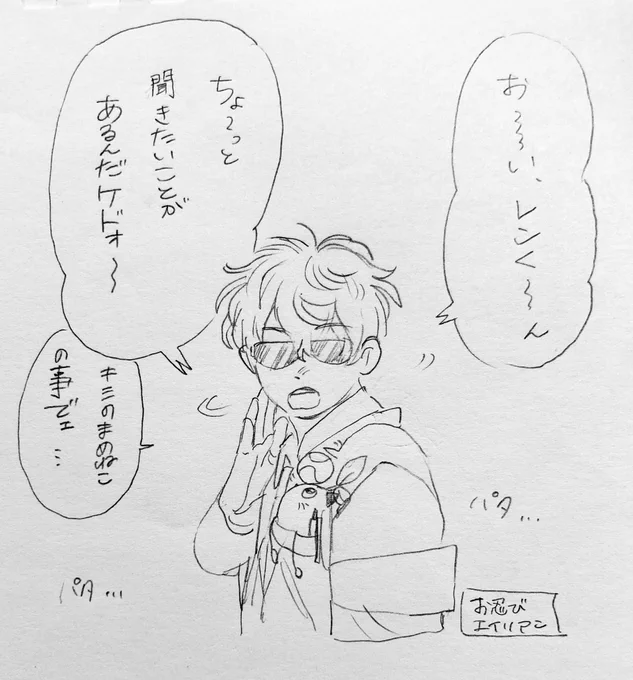 お〜〜い、レンく〜〜ん
ちょ〜っと
聞きたいことが
あるんだケドォ〜
キミのまめねこ
の事でェ…
パタ…
パタ…
お忍び
エイリアン